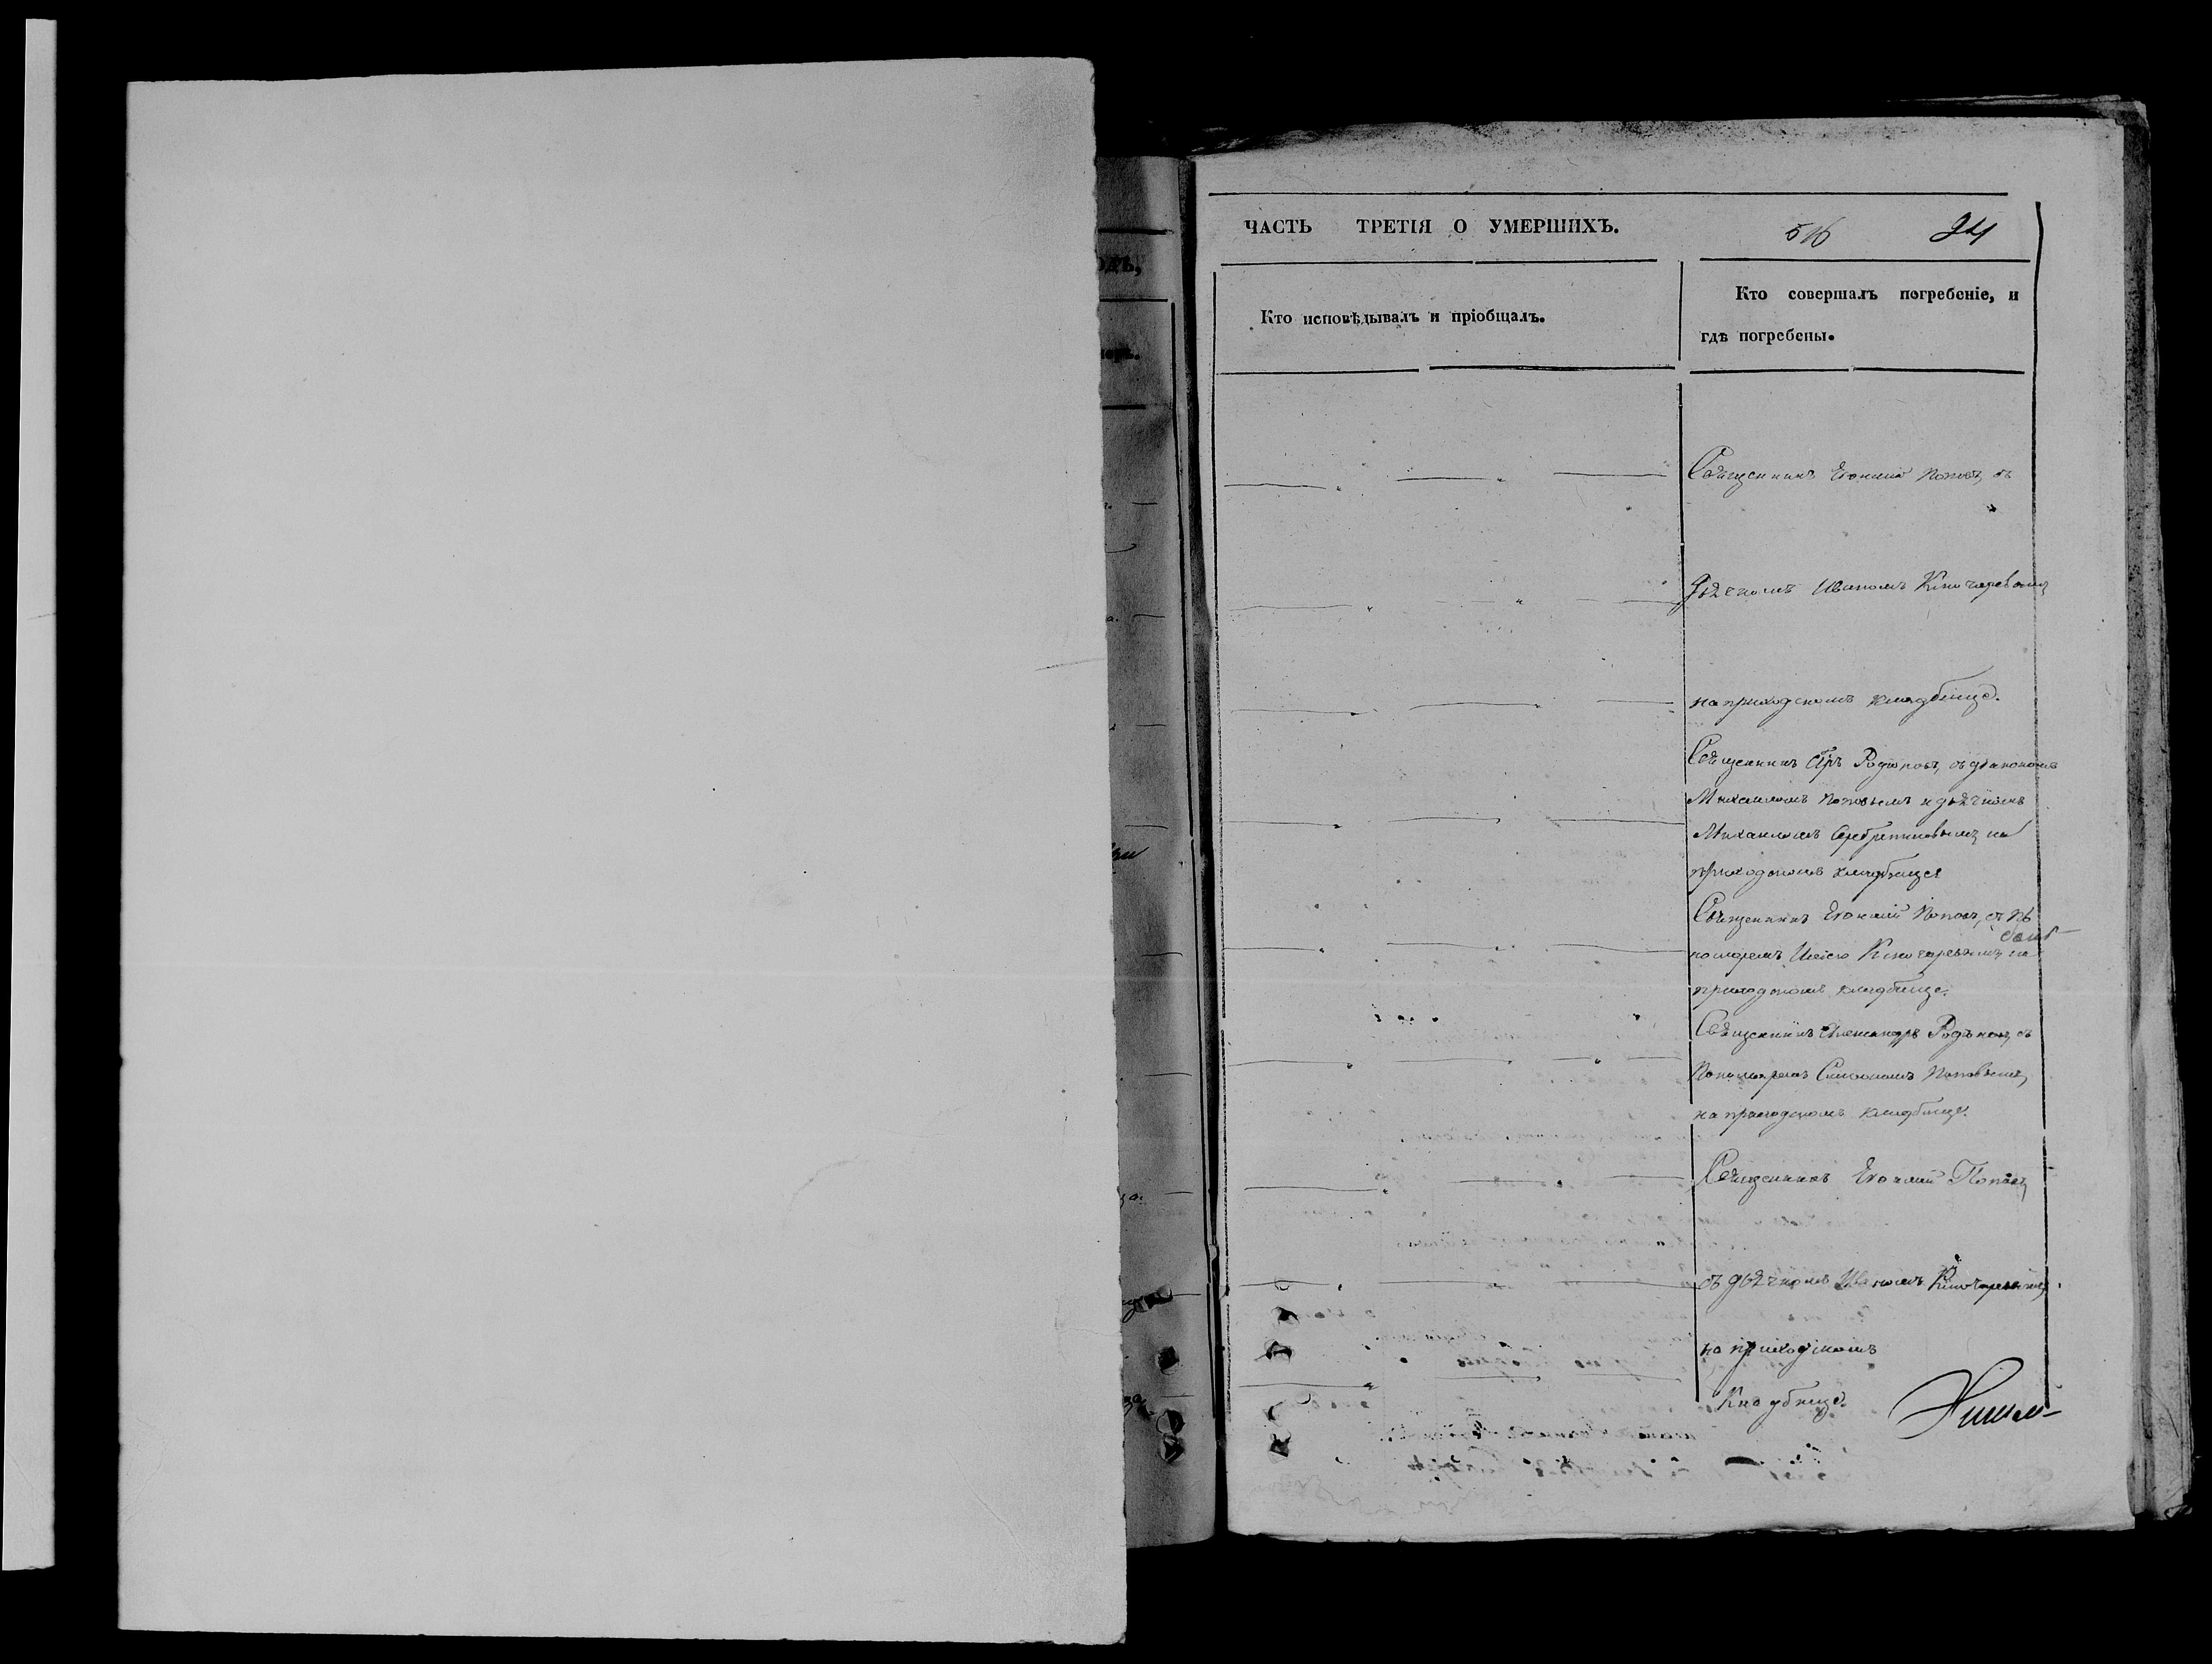 ЧАСТЬ ТРЕТІЯ О УМЕРШИХЪ.
516 24
Кто исповѣдывалъ и пріобщалъ.
Кто совершалъ погребеніе, и
гдѣ погребены.
Священникъ Евѳимій Поповъ, съ
дьячкомъ Иваномъ Ключаревымъ,
на приходскомъ кладбищѣ.
Священникъ Родіоновъ, съ діакономъ
Михаиломъ Поповымъ и дьячкомъ
Михаиломъ Серебрениковымъ, на
приходскомъ кладбищѣ
Священникъ Евѳимій Поповъ, съ По
номаремъ Ключаревымъ, на
приходскомъ кладбищѣ.
Священникъ Александръ Родіоновъ, съ
Пономаремъ Симеономъ Поповымъ,
на приходскомъ кладбищѣ.
Священникъ Евѳимій Поповъ,
съ дьячкомъ Иваномъ Ключаревымъ,
на приходскомъ
Кладбищѣ.